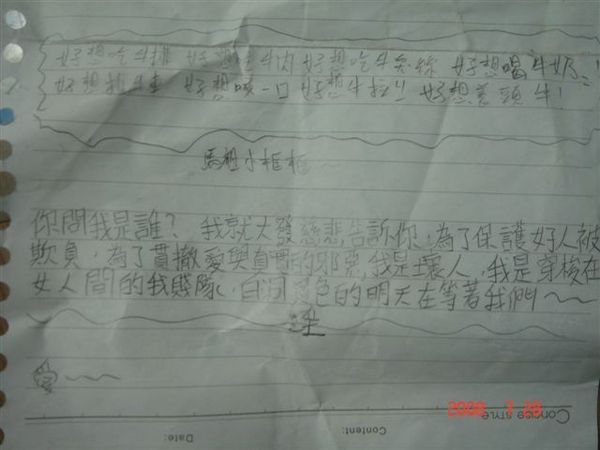 好想吃牛排 好想 牛肉 好想吃牛 好想喝牛奶
好想 牛 好想 一口 好想牛 好想 頭牛!
馬祖小框框
你問我是誰? 我就大發慈悲告訴你,為了保護好人被
欺負,為了貫撤愛與真實的邪惡,我是壞人,我是穿梭在
女人間的我賤隊,白洞 色的明天在等著我們~~
2008 7 26
Concise STYLE
Content:
Date: